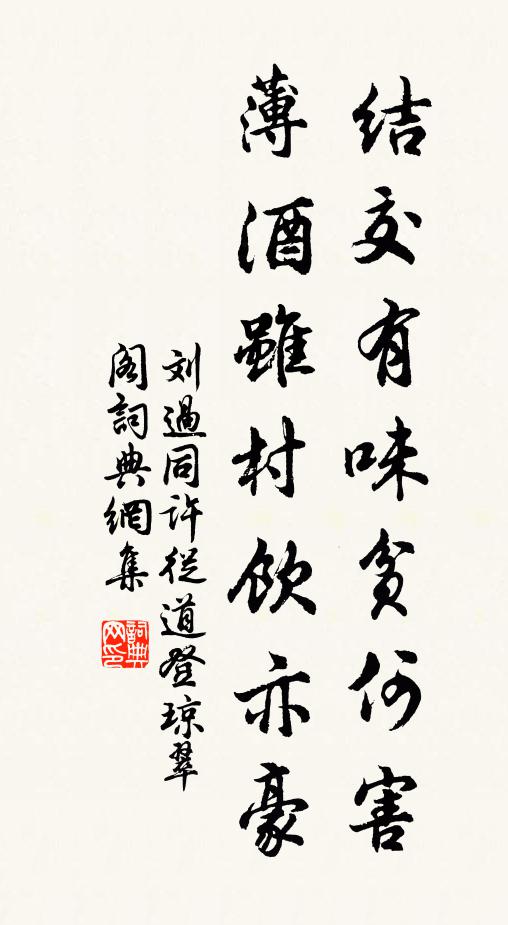 结交有味贫何害
薄酒雖村飲亦豪
刘過同许從道登琼翠
阁詞典網集
詞典
网印